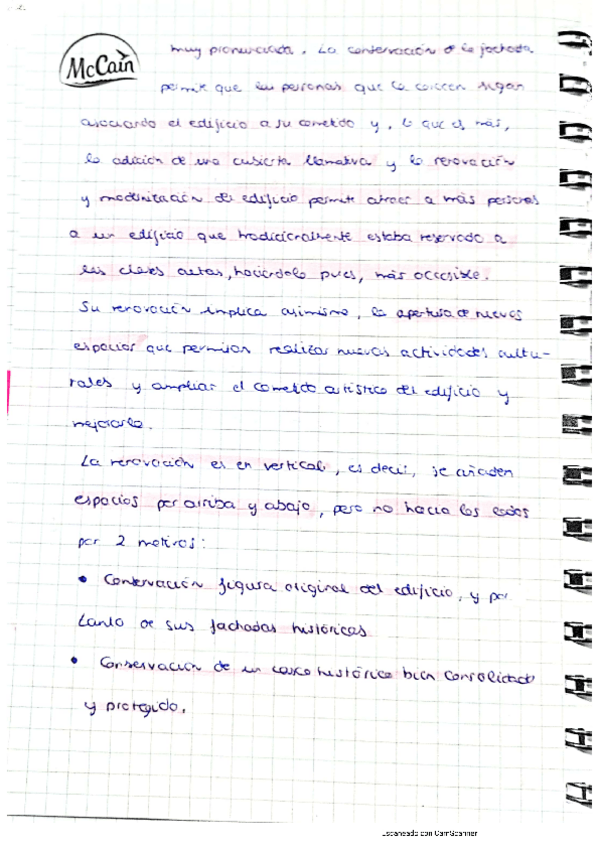 McCain
muy pronunciada. La conservación d la fachada
permite que las personas que la conocen sigan
asociando el edificio a su cometido y, lo que es más,
la adición de una cubierta llamativa y la renovación
y modernización del edificio permite atraer a más personas
a un edificio que tradicionalmente estaba reservado a
las clases altas, haciéndolo pues, más accesible.
Su renovación implica asimismo, la apertura de nuevos
espacios que permitan realizar nuevas actividades cultu-
rales y ampliar el cometido artístico del edificio y
mejorarlo.
La renovación es en vertical, es decir, se añaden
espacios por arriba y abajo, pero no hacia los lados
por 2 motivos:
• Conservación figura original del edificio, y por
tanto de sus fachadas históricas
• Conservación de un casco histórico bien consolidado
y protegido.
Escaneado con CamScanner